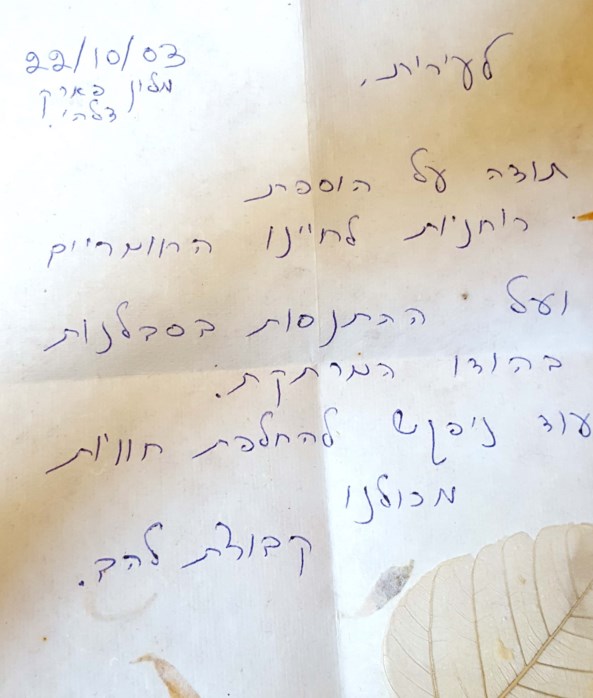 22/10/03
מלון פארק
דלהי.
לעירית,
תודה על הוספת
רוחניות לחיינו החומריים
ועל ההתנסות בסבלנות
בהודו המרתקת.
עוד ניפגש להחלפת חוויות
מכולנו
קבוצת להב.